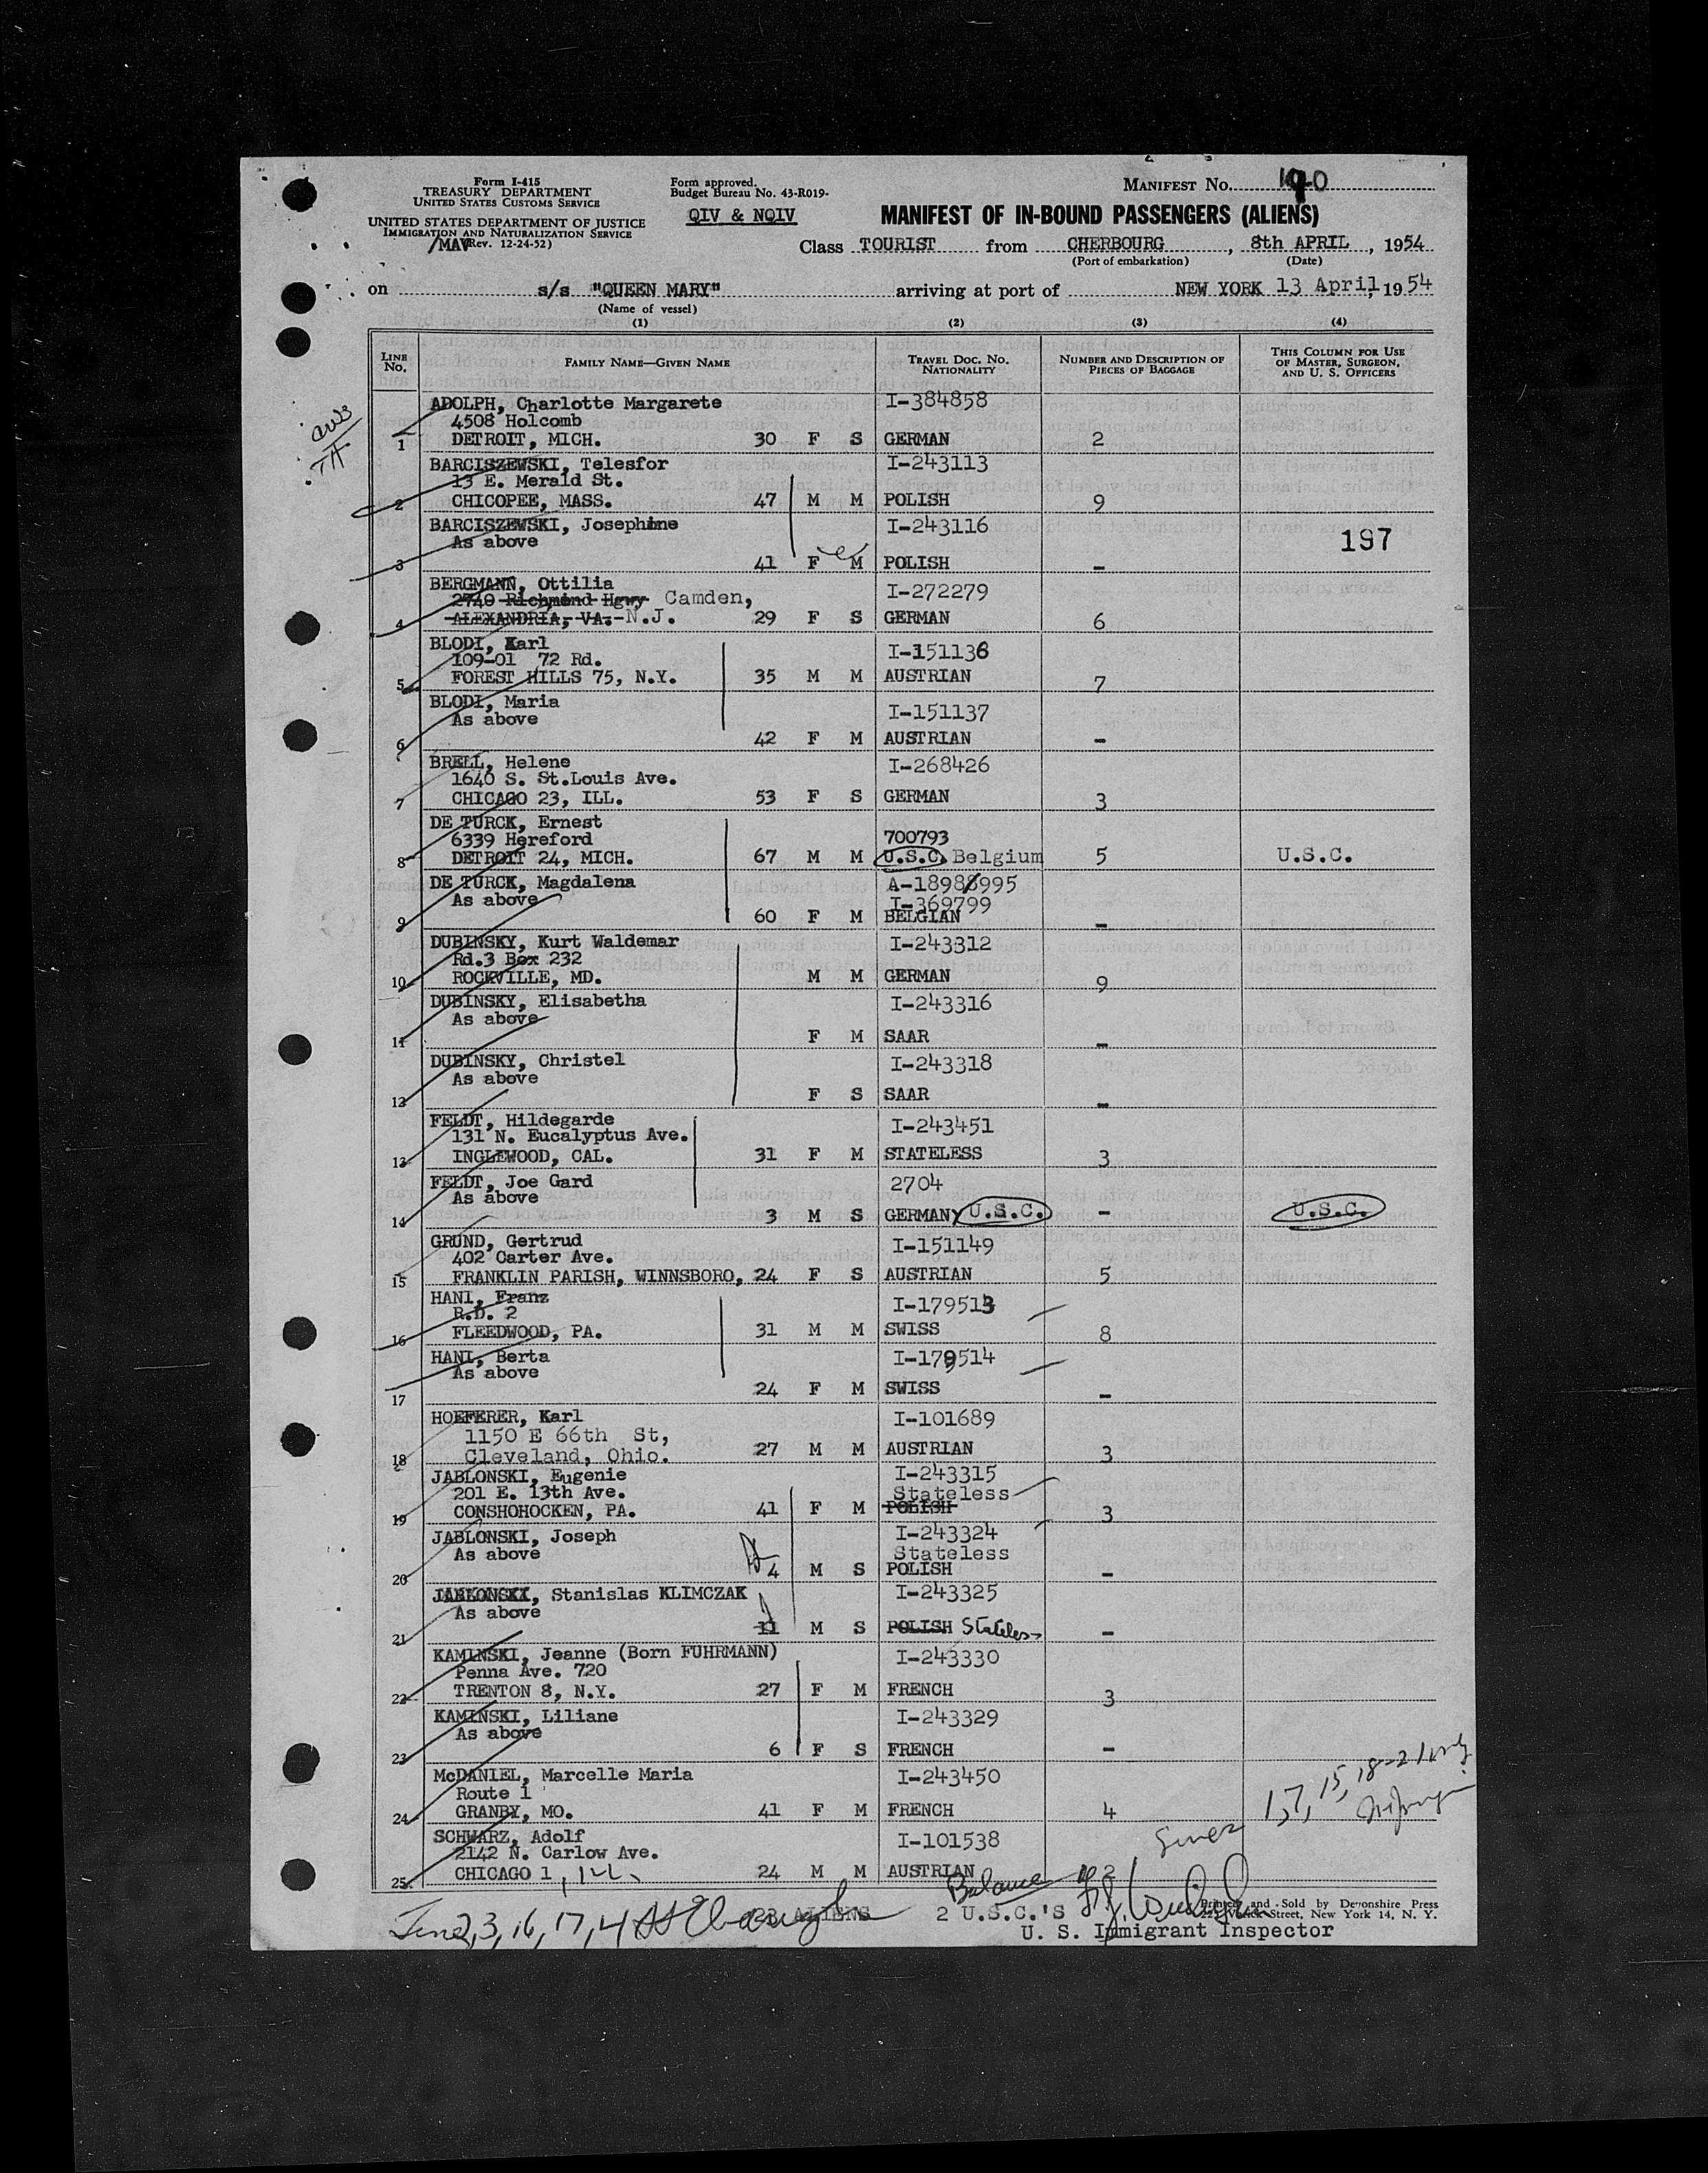 Form I-415
TREASURY DEPARTMENT
UNITED STATES CUSTOMS SERVICE
UNITED STATES DEPARTMENT OF JUSTICE
IMMIGRATION AND NATURALIZATION SERVICE
/MAV (Rev. 12-24-52)
Form approved.
Budget Bureau No. 43-R019-
QIV & NQIV
MANIFEST No.
MANIFEST OF IN-BOUND PASSENGERS (ALIENS)
Class TOURIST from CHERBOURG, 8th APRIL, 1954
(Port of embarkation) (Date)
on s/s "QUEEN MARY" arriving at port of NEW YORK 13 April, 1954
(Name of vessel)
(1) (2) (3) (4)
LINE No. FAMILY NAME—GIVEN NAME TRAVEL DOC. NO. NATIONALITY NUMBER AND DESCRIPTION OF PIECES OF BAGGAGE THIS COLUMN FOR USE OF MASTER, SURGEON, AND U. S. OFFICERS
ADOLPH, Charlotte Margarete I-384858
4508 Holcomb
1 DETROIT, MICH. 30 F S GERMAN 2
BARCISZEWSKI, Telesfor I-243113
13 E. Merald St.
2 CHICOPEE, MASS. 47 M M POLISH 9
BARCISZEWSKI, Josephine I-243116
As above 197
3 41 F M POLISH -
BERGMANN, Ottilia I-272279
2740 Richmond Hgwy Camden,
4 ALEXANDRIA, VA. N.J. 29 F S GERMAN 6
BLODI, Karl I-151136
109-01 72 Rd.
5 FOREST HILLS 75, N.Y. 35 M M AUSTRIAN 7
BLODI, Maria I-151137
As above
6 42 F M AUSTRIAN -
BRELL, Helene I-268426
1640 S. St.Louis Ave.
7 CHICAGO 23, ILL. 53 F S GERMAN 3
DE TURCK, Ernest 700793
6339 Hereford
8 DETROIT 24, MICH. 67 M M U.S.C. Belgium 5 U.S.C.
DE TURCK, Magdalena A-18988995
As above I-369799
9 60 F M BELGIAN -
DUBINSKY, Kurt Waldemar I-243312
Rd.3 Box 232
10 ROCKVILLE, MD. M M GERMAN 9
DUBINSKY, Elisabetha I-243316
As above
11 F M SAAR -
DUBINSKY, Christel I-243318
As above
12 F S SAAR -
FELDT, Hildegarde I-243451
131 N. Eucalyptus Ave.
13 INGLEWOOD, CAL. 31 F M STATELESS 3
FELDT, Joe Gard 2704
As above
14 3 M S GERMANY U.S.C. - U.S.C.
GRUND, Gertrud I-151149
402 Carter Ave.
15 FRANKLIN PARISH, WINNSBORO, 24 F S AUSTRIAN 5
HANI, Franz I-179513
R.D. 2
16 FLEEDWOOD, PA. 31 M M SWISS 8
HANI, Berta I-179514
As above
17 24 F M SWISS -
HOEFERER, Karl I-101689
1150 E 66th St,
18 Cleveland, Ohio. 27 M M AUSTRIAN 3
JABLONSKI, Eugenie I-243315
201 E. 13th Ave. Stateless
19 CONSHOHOCKEN, PA. 41 F M POLISH 3
JABLONSKI, Joseph I-243324
As above Stateless
20 4 M S POLISH -
JABLONSKI, Stanislas KLIMCZAK I-243325
As above
21 11 M S POLISH Stateless -
KAMINSKI, Jeanne (Born FUHRMANN) I-243330
Penna Ave. 720
22 TRENTON 8, N.Y. 27 F M FRENCH 3
KAMINSKI, Liliane I-243329
As above
23 6 F S FRENCH -
McDANIEL, Marcelle Maria I-243450
Route 1
24 GRANBY, MO. 41 F M FRENCH 4
1, 7, 15, 18-21
SCHWARZ, Adolf I-101538
2142 N. Carlow Ave.
25 CHICAGO 1, Ill. 24 M M AUSTRIAN 2
Balance
Lines 2, 3, 16, 17, 4 23 ALIENS 2 U.S.C.'S
Printed and Sold by Devonshire Press
Street, New York 14, N. Y.
U. S. Immigrant Inspector